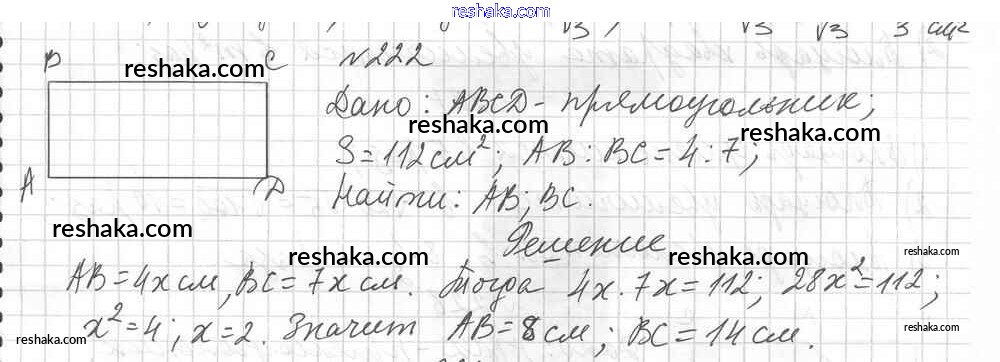 reshaka.com
√3 √3 √3 3 см²
B C №222
reshaka.com reshaka.com
Дано: ABCD - прямоугольник;
reshaka.com reshaka.com
S = 112 см²; AB : BC = 4 : 7;
A D Найти: AB; BC.
reshaka.com Решение
reshaka.com reshaka.com reshaka.com
AB = 4x см, BC = 7x см. Тогда 4x · 7x = 112; 28x² = 112;
x² = 4; x = 2. Значит AB = 8 см; BC = 14 см.
reshaka.com reshaka.com reshaka.com